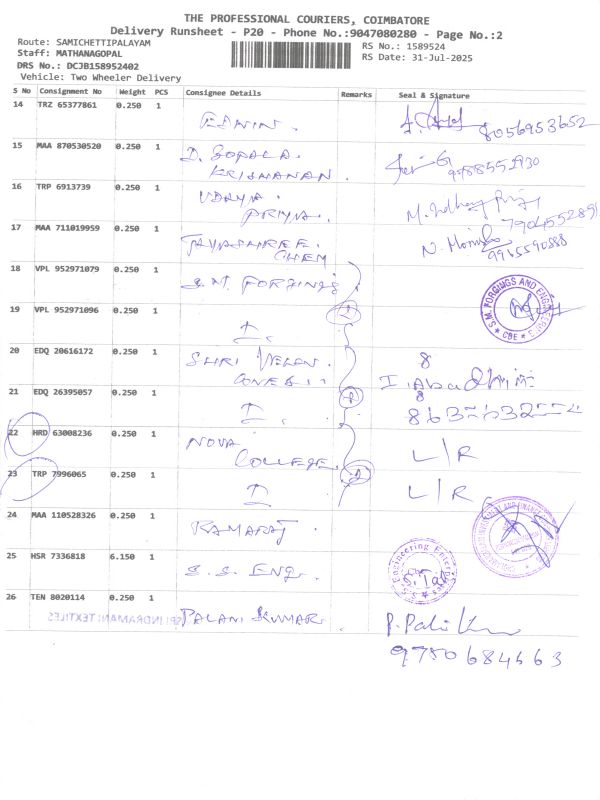 THE PROFESSIONAL COURIERS, COIMBATORE
Delivery Runsheet - P20 - Phone No.:9047080280 - Page No.:2
Route: SAMICHETTIPALAYAM
Staff: MATHANAGOPAL
DRS No.: DCJB158952402
Vehicle: Two Wheeler Delivery
RS No.: 1589524
RS Date: 31-Jul-2025
S No Consignment No Weight PCS Consignee Details Remarks Seal & Signature
14 TRZ 65377861 0.250 1 EDWIN. 8056953652
15 MAA 870530520 0.250 1 D. GOPALA
KRISHANAN.
16 TRP 6913739 0.250 1 UDAYA
PRIYA.
17 MAA 711019959 0.250 1 JAYASHREE
CHEM
18 VPL 952971079 0.250 1 S.M. FORGINGS
19 VPL 952971096 0.250 1 S.M. FORGINGS AND CBE
20 EDQ 20616172 0.250 1 SHRI VELAN
21 EDQ 26395057 0.250 1
22 HRD 63008236 0.250 1 NOVA
COLLEGE L/R
23 TRP 7996065 0.250 1 L/R
24 MAA 110528326 0.250 1 KAMARAJ
25 HSR 7336818 6.150 1 S.S. ENG. Engineering
26 TEN 8020114 0.250 1 PALANI KUMAR
SRI INDRAMANI TEXTILES
9750684663